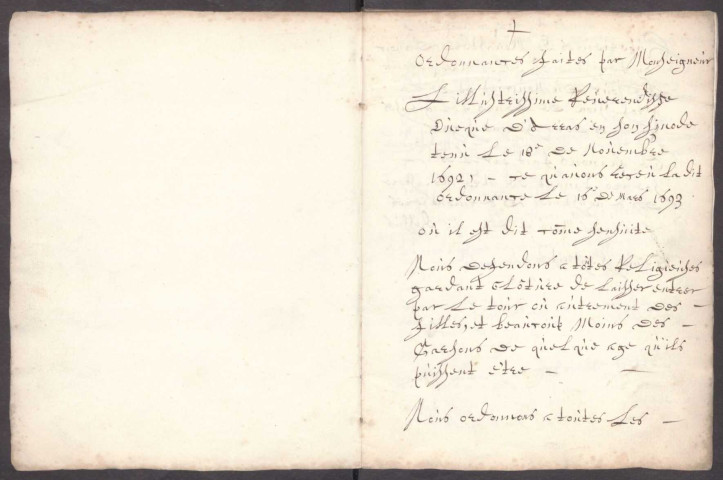 ordonnances faites par Monseigneur
L illustrissime Reverendisse
Eveque D'Arras en son sinode
tenu Le 18e De Novembre
1692 – ce qu'avons receu Ladit
ordonnance Le 16 De Mars 1693
ou il est dit come sensuite
Nous Defendons a totes Religieuses
gardant Clôture de Laisser entrer
par Le tour ou autrement Des –
filles, et beaucoup Moins Des –
Garsons De quelque age qu'ils
puissent etre –
Nous ordonnons a toutes Les –